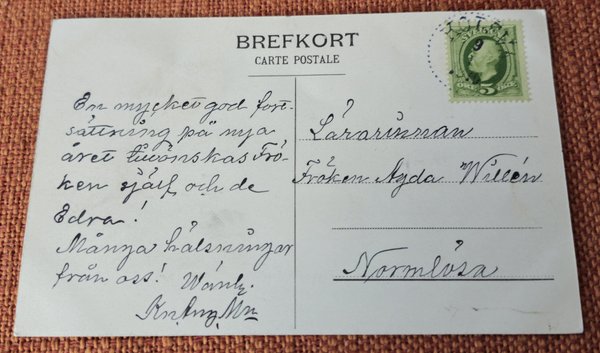 BREFKORT
CARTE POSTALE
SVERIGE
5
En mycket god fort-
sättning på nya
året tillönskas Frö-
ken själf och de
Edra!
Många hälsningar
från oss!
Lärarinnan
Fröken Agda Willén
Normlösa